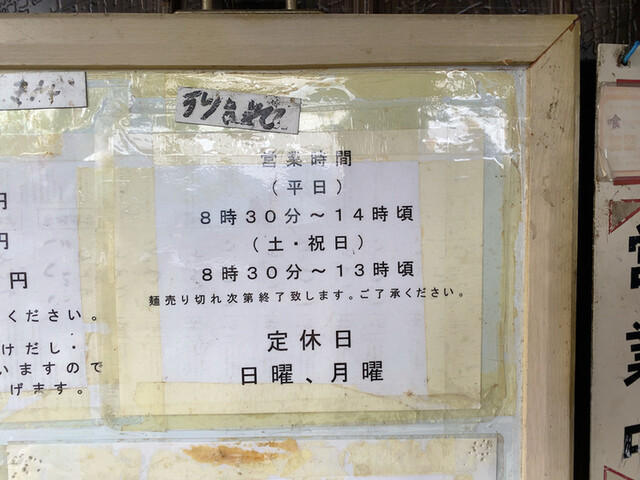 営業時間
(平日)
8時30分〜14時頃
(土・祝日)
8時30分〜13時頃
麺売り切れ次第終了致します。ご了承ください。
定休日
日曜、月曜
円
円
円
ください。
けだし・
いますので
げます。
営業中